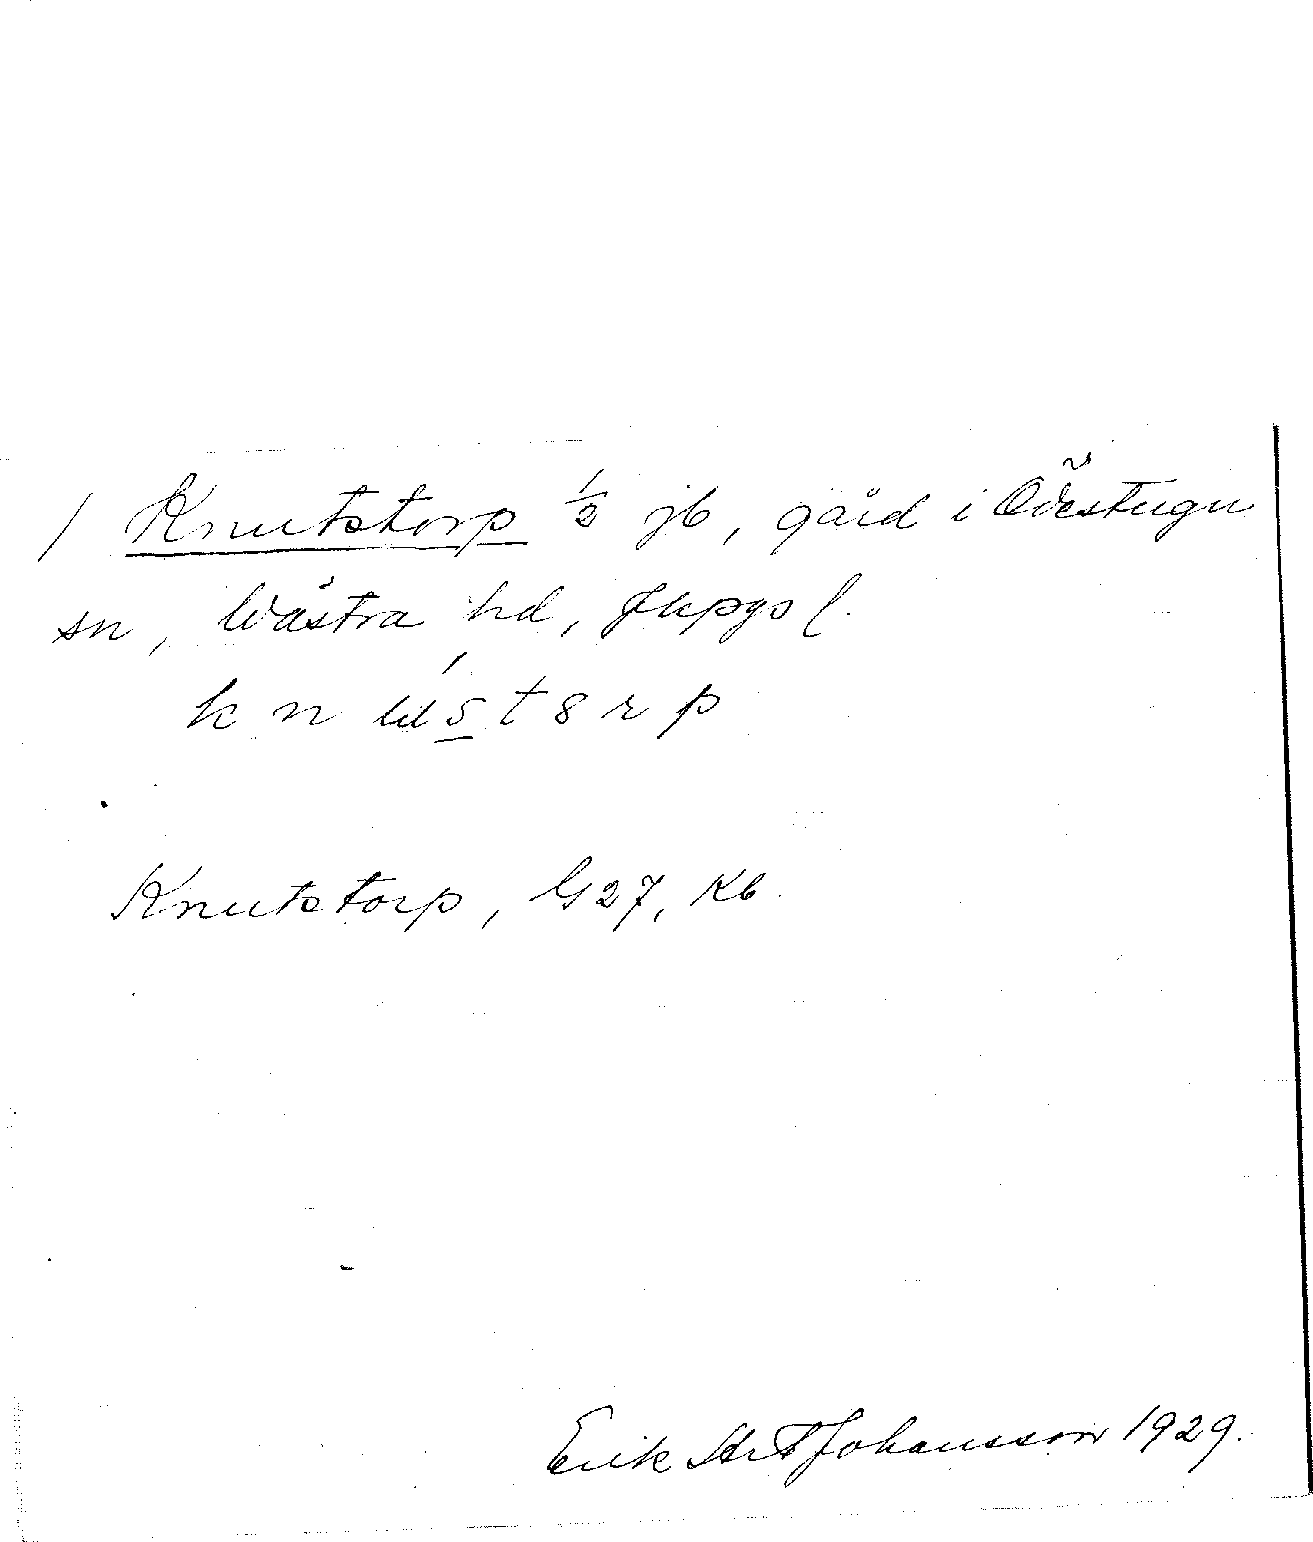 / Knutstorp 1/2 jb, gård i Övestugu
sn, Västra hd, Jkpgs l.
k n ú s t 8 r p
Knutstorp, G27, Kb.
Erik Johansson 1929.